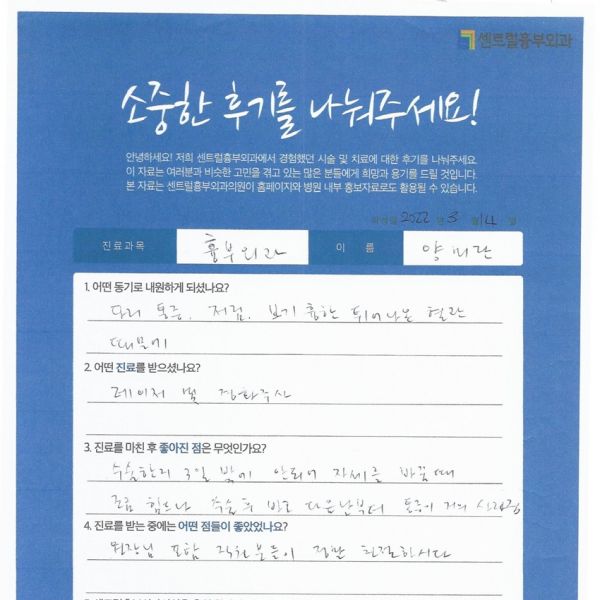 센트럴흉부외과
소중한 후기를 나눠주세요!
안녕하세요! 저희 센트럴흉부외과에서 경험했던 시술 및 치료에 대한 후기를 나눠주세요.
이 자료는 여러분과 비슷한 고민을 겪고 있는 많은 분들에게 희망과 용기를 드릴 것입니다.
본 자료는 센트럴흉부외과의원이 홈페이지와 병원 내부 홍보자료로도 활용될 수 있습니다.
2022 년 3 월 14 일
진료과목 흉부외과 이 름 양미란
1. 어떤 동기로 내원하게 되셨나요?
다리 통증, 저림, 보기 흉한 튀어나온 혈관
때문에
2. 어떤 진료를 받으셨나요?
레이저 및 경화주사
3. 진료를 마친 후 좋아진 점은 무엇인가요?
수술한지 3일 밖에 안되어 자세를 바꿀때
조금 힘드나 수술 후 바로 다음날부터 통증이 거의 사라짐
4. 진료를 받는 중에는 어떤 점들이 좋았었나요?
원장님 포함 직원분들이 정말 친절하시다